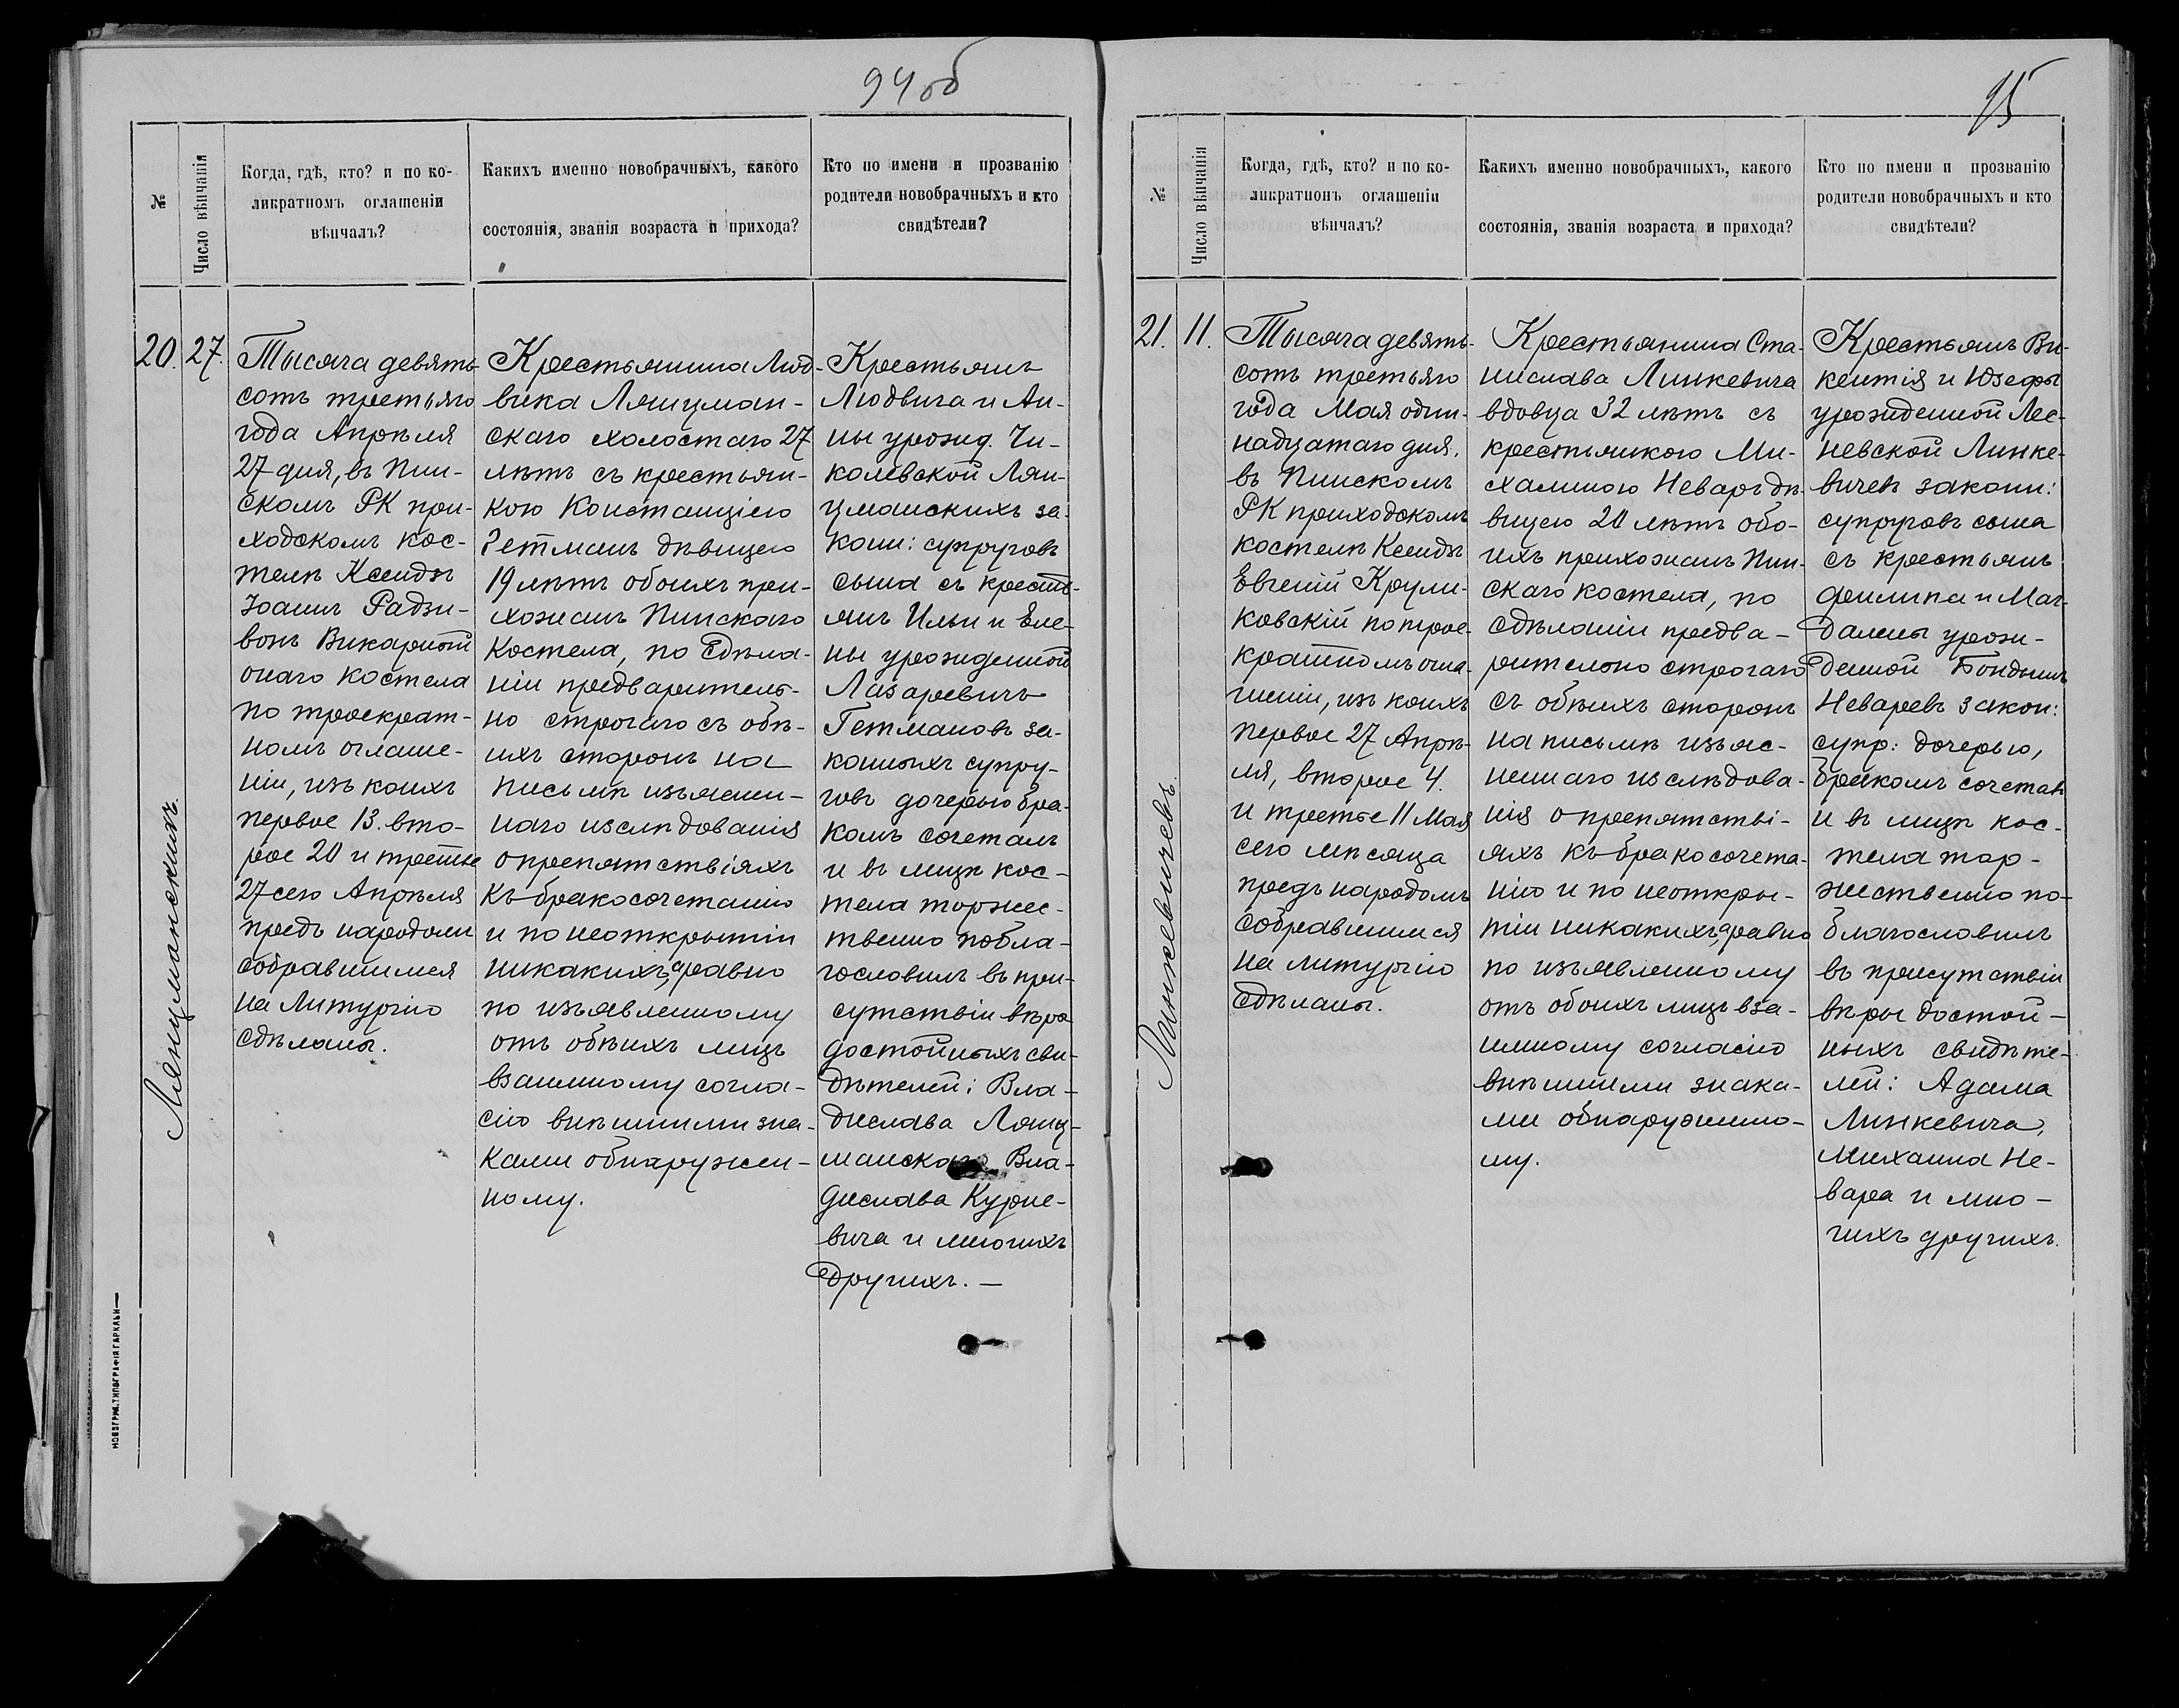 94об
№
Число вѣнчанія
Когда, гдѣ, кто? и по ко-
ликратномъ оглашеніи
вѣнчалъ?
Какихъ именно новобрачныхъ, какого
состоянія, званія возраста и прихода?
Кто по имени и прозванію
родители новобрачныхъ и кто
свидѣтели?
20.
27.
Лянцманскихъ.
Тысяча девять-
сотъ третьяго
года Апрѣля
27 дня, въ Пин-
скомъ РК при-
ходскомъ кос-
телѣ Ксендзъ
Іоаннъ Радзи-
вонъ Викарный
онаго костела
по троекрат-
номъ оглаше-
ніи, изъ коихъ
первое 13. вто-
рое 20 и третье
27 сего Апрѣля
предъ народомъ
собравшимся
на Литургію
сдѣланы.
Крестьянина Люд-
вика Лянцман-
скаго холостаго 27
лѣтъ съ крестьян-
кою Констанціею
Гетманъ дѣвицею
19 лѣтъ обоихъ при-
хожанъ Пинскаго
Костела, по сдѣла-
ніи предваритель-
но строгаго съ обѣ-
ихъ сторонъ на
письмѣ изъяснен-
наго изслѣдованія
о препятствіяхъ
къ бракосочетанію
и по неоткрытіи
никакихъ, равно
по изъявленному
отъ обѣихъ лицъ
взаимному согла-
сію внѣшними зна-
ками обнаружен-
ному.
Крестьянъ
Людвига и Ан-
ны урожд. Чи-
колевской Лян-
цманскихъ за-
конн: супруговъ
сына съ кресть-
янъ Ильи и Еле-
ны урожденной
Лазаревичъ
Гетмановъ за-
конныхъ супру-
говъ дочерью бра-
комъ сочеталъ
и въ лицѣ кос-
тела торжес-
твенно побла-
гословилъ въ при-
сутствіи вѣро
достойныхъ сви-
дѣтелей: Вла-
дислава Лянц-
манскаго Вла-
дислава Курие-
вича и многихъ
другихъ. —
НОВОГРУД. ТИПОГРАФІЯ ГАРКАВИ—
95
№
Число вѣнчанія
Когда, гдѣ, кто? и по ко-
ликратномъ оглашеніи
вѣнчалъ?
Какихъ именно новобрачныхъ, какого
состоянія, званія возраста и прихода?
Кто по имени и прозванію
родители новобрачныхъ и кто
свидѣтели?
21.
11.
Линкевичевъ.
Тысяча девять-
сотъ третьяго
года Мая один-
надцатаго дня,
въ Пинскомъ
РК приходскомъ
костелѣ Ксендзъ
Евгеній Крули-
ковскій по трое-
кратномъ огла-
шеніи, изъ коихъ
первое 27 Апрѣ-
ля, второе 4.
и третье 11 Мая
сего мѣсяца
предъ народомъ
собравшимся
на литургію
сдѣланы.
Крестьянина Ста-
нислава Линкевича
вдовца 32 лѣтъ съ
крестьянкою Ми-
халиною Неваръ дѣ-
вицею 20 лѣтъ обо-
ихъ прихожанъ Пин-
скаго костела, по
сдѣланіи предва-
рительно строгаго
съ обѣихъ сторонъ
на письмѣ изъяс-
неннаго изслѣдова-
нія о препятстві-
яхъ къ бракосочета-
нію и по неоткры-
тіи никакихъ, равно
по изъявленному
отъ обоихъ лицъ вза-
имному согласію
внѣшними знака-
ми обнаруженно-
му.
Крестьянъ Ви-
кентія и Юзефы
урожденной Лес-
невской Линке-
вичей законн:
супруговъ сына
съ крестьянъ
Филиппа и Маг-
далены урож-
денной Бондынъ
Неваревъ закон:
супр: дочерью,
бракомъ сочеталъ
и въ лицѣ кос-
тела тор-
жественно по-
благословилъ
въ присутствіи
вѣры достой-
ныхъ свидѣте-
лей: Адама
Линкевича,
Михаила Не-
вара и мно-
гихъ другихъ.